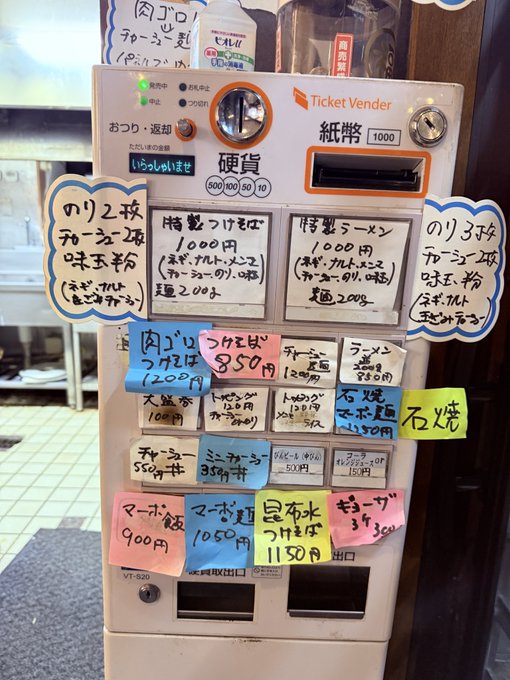 肉ゴロ
チャーシュー麺
ビオレu
商売繁盛
発売中
お札中止
中止
つり切れ
Ticket Vender
おつり・返却
紙幣
1000
ただいまの金額
いらっしゃいませ
硬貨
500 100 50 10
のり2枚
チャーシュー2枚
味玉
(ネギ、ナルト
特製つけそば
1000円
(ネギ、ナルト、メンマ
チャーシュー、のり、味玉)
麺200g
特製ラーメン
1000円
(ネギ、ナルト、メンマ
チャーシュー、のり、味玉)
麺200g
のり3枚
チャーシュー2枚
味玉
(ネギ、ナルト
肉ゴロ
つけそば
1200円
つけそば
850円
チャーシュー
麺
1200円
ラーメン
並200g
850円
大盛券
100円
トッピング
120円
チャーシュー
のり
トッピング
120円
ライス
石焼
マーボ麺
1150円
石焼
チャーシュー
550円丼
ミニチャーシュー
350円丼
びんビール(中びん)
500円
コーラor
オレンジジュース
150円
マーボ飯
900円
マーボ麺
1050円
昆布水
つけそば
1150円
ギョーザ
3ケ
300
VT-S20
硬貨取出口
出口